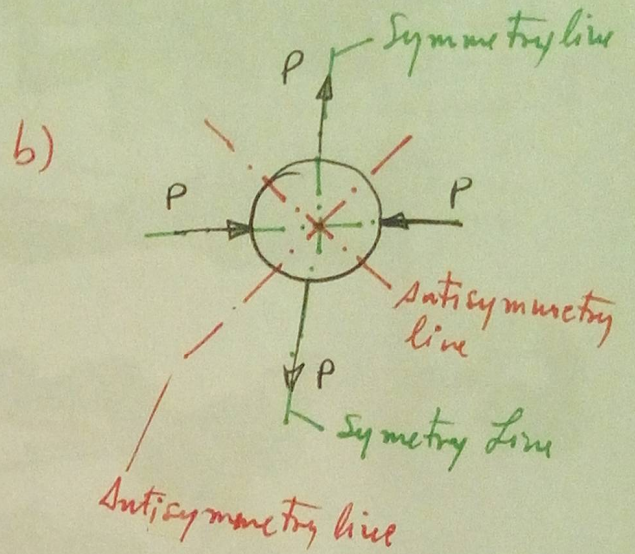 Symmetry line
P
b)
P
P
Antisymmetry
line
P
Symetry Line
Antisymmetry line